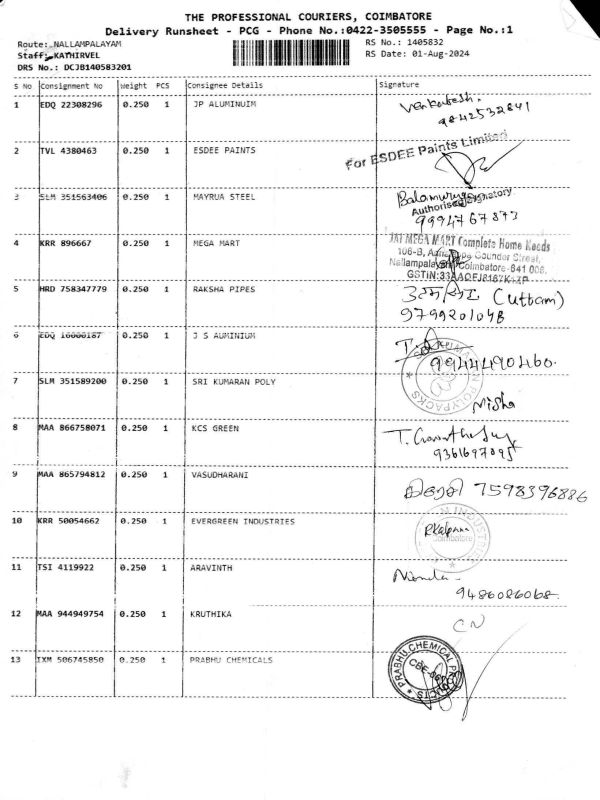 THE PROFESSIONAL COURIERS, COIMBATORE
Delivery Runsheet - PCG - Phone No.:0422-3505555 - Page No.:1
Route: NALLAMPALAYAM RS No.: 1405832
Staff: KATHIRVEL RS Date: 01-Aug-2024
DRS No.: DCJB140583201
S No Consignment No Weight PCS Consignee Details Signature
1 EDQ 22308296 0.250 1 JP ALUMINUIM Venkatesh.
9842532841
2 TVL 4380463 0.250 1 ESDEE PAINTS For ESDEE Paints Limited
3 SLM 351563406 0.250 1 MAYRUA STEEL Balamurugan
Authorised Signatory
9994767873
4 KRR 896667 0.250 1 MEGA MART JAI MEGA MART Complete Home Needs
106-B, Gounder Street,
Nallampalayam Coimbatore-641 006.
GSTIN:
5 HRD 758347779 0.250 1 RAKSHA PIPES (Uttam)
9799201048
6 EDQ 16000187 0.250 1 J S AUMINIUM
9944490460.
7 SLM 351589200 0.250 1 SRI KUMARAN POLY KUMARAN POLYPACKS
Nisha
8 MAA 866758071 0.250 1 KCS GREEN T.
9361697095
9 MAA 865794812 0.250 1 VASUDHARANI 7598396886
10 KRR 50054662 0.250 1 EVERGREEN INDUSTRIES INDUSTRIES
RKalpana
Coimbatore
11 TSI 4119922 0.250 1 ARAVINTH
9486086068.
12 MAA 944949754 0.250 1 KRUTHIKA CN
13 IXM 506745850 0.250 1 PRABHU CHEMICALS PRABHU CHEMICAL PRODUCTS